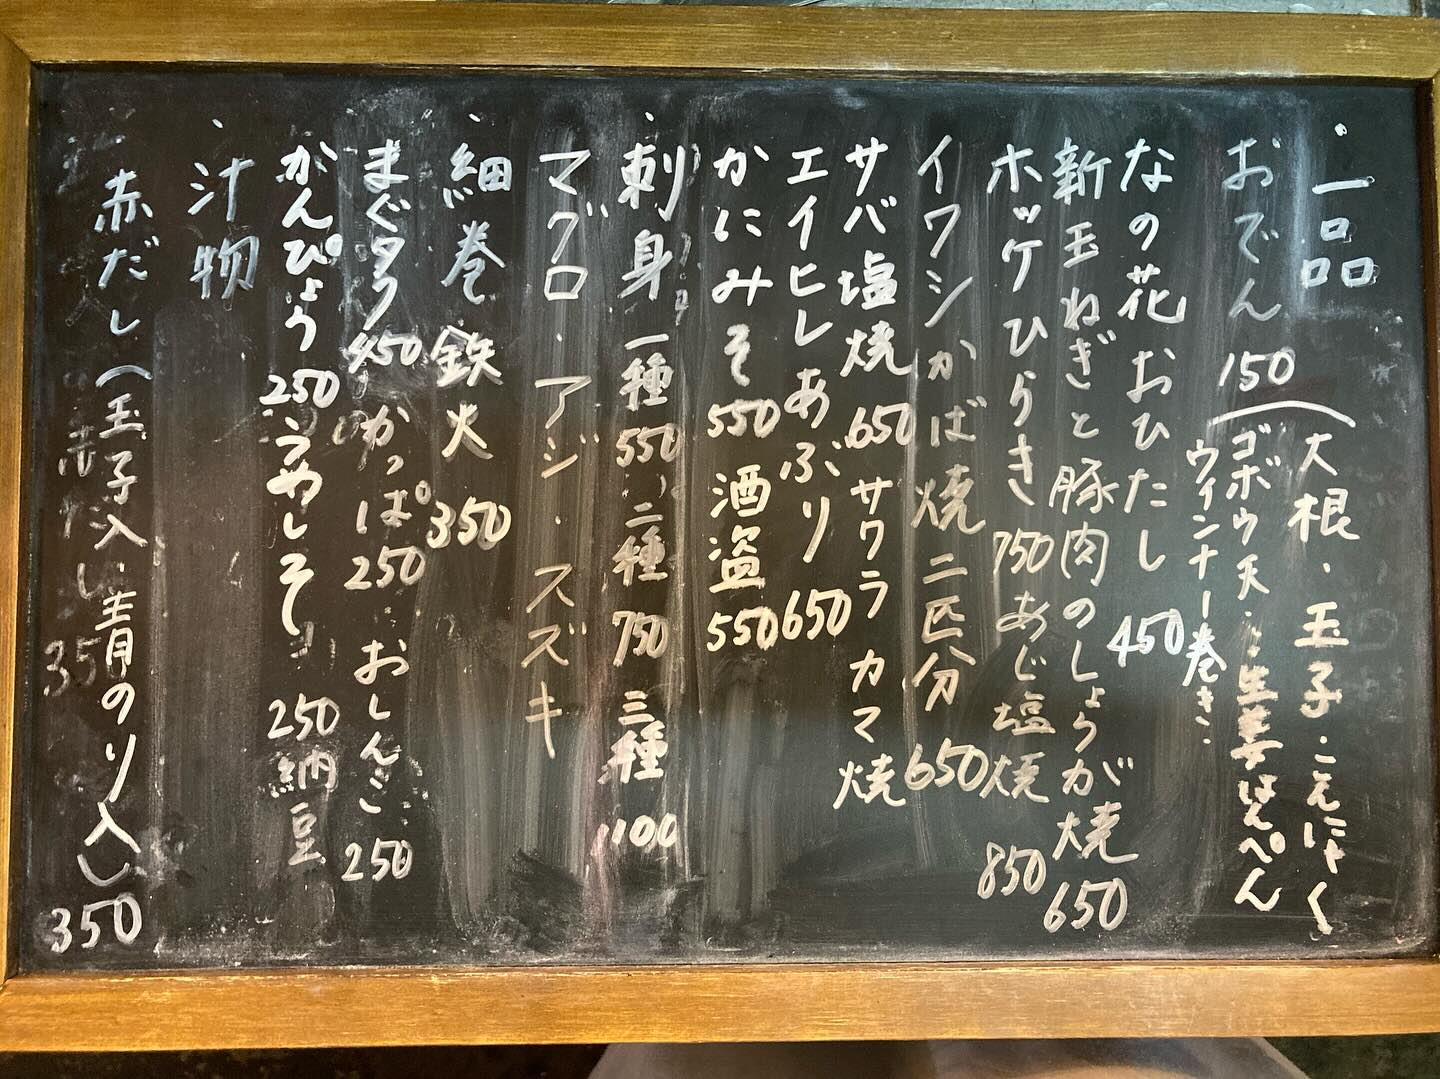 ・一品
おでん 150
大根・玉子・こんにゃく
ゴボウ天・生姜はんぺん
ウインナー巻き・
なの花おひたし 450
新玉ねぎと豚肉のしょうが焼 650
ホッケひらき 750 あじ塩焼 850
イワシかば焼二匹分 650
サバ塩焼 650 サワラカマ焼
エイヒレあぶり 650
かにみそ 550 酒盗 550
・刺身 一種 550 二種 750 三種 1100
マグロ・アジ・スズキ
・細巻 鉄火 350
まぐタク 450 かっぱ 250 おしんこ 250
かんぴょう 250 うめしそ 250 納豆
・汁物
赤だし(玉子入・青のり入) 350